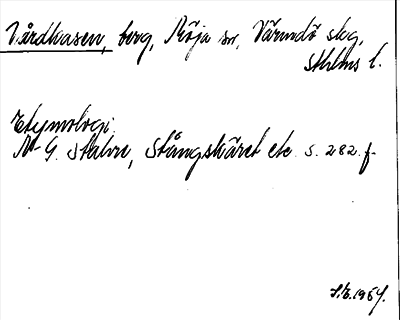 Vårdkasen, berg, Möja sn, Värmdö skg,
Sthlms l.
Etymologi.
N-G. Stahre, Stångskäret etc. s. 282 f.
S.E. 1964.